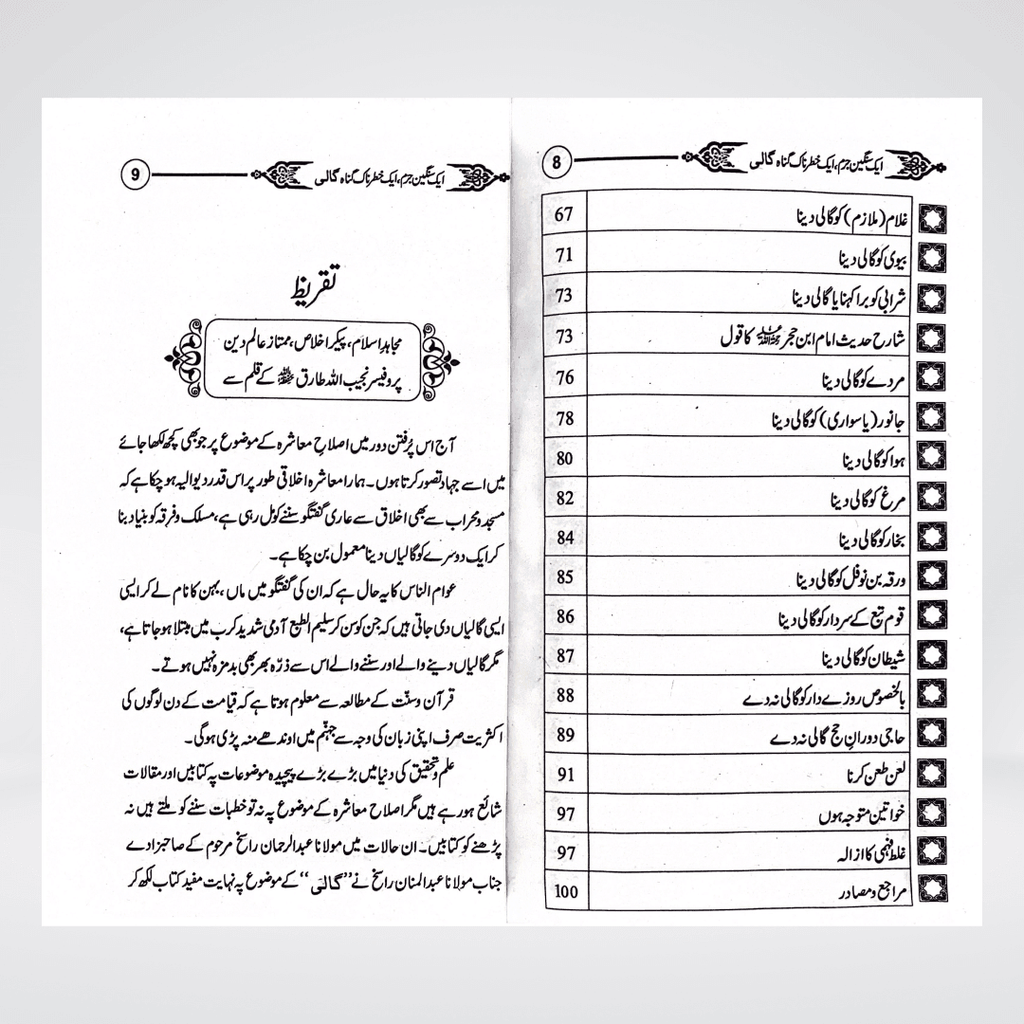 ایک سنگین جرم، ایک خطرناک گناہ گالی 8
غلام (ملازم) کو گالی دینا 67
بیوی کو گالی دینا 71
شرابی کو برا کہنا یا گالی دینا 73
شارح حدیث امام ابن حجر رحمہ اللہ کا قول 73
مردے کو گالی دینا 76
جانور (یا سواری) کو گالی دینا 78
ہوا کو گالی دینا 80
مرغ کو گالی دینا 82
بخار کو گالی دینا 84
ورقہ بن نوفل کو گالی دینا 85
قوم تبع کے سردار کو گالی دینا 86
شیطان کو گالی دینا 87
بالخصوص روزے دار کو گالی نہ دے 88
حاجی دورانِ حج گالی نہ دے 89
لعن طعن کرنا 91
خواتین متوجہ ہوں 97
غلط فہمی کا ازالہ 97
مراجع و مصادر 100
ایک سنگین جرم، ایک خطرناک گناہ گالی 9
تقریظ
مجاہدِ اسلام، پیکرِ اخلاص، ممتاز عالم دین
پروفیسر نجیب اللہ طارق کے قلم سے
آج اس پُرفتن دور میں اصلاحِ معاشرہ کے موضوع پر جو بھی کچھ لکھا جائے
میں اسے جہاد تصور کرتا ہوں۔ ہمارا معاشرہ اخلاقی طور پر اس قدر دیوالیہ ہو چکا ہے کہ
مسجد و محراب سے بھی اخلاق سے عاری گفتگو سننے کو مل رہی ہے، مسلک و فرقہ کو بنیاد بنا
کر ایک دوسرے کو گالیاں دینا معمول بن چکا ہے۔
عوام الناس کا یہ حال ہے کہ ان کی گفتگو میں ماں، بہن کا نام لے کر ایسی
ایسی گالیاں دی جاتی ہیں کہ جن کو سن کر سلیم الطبع آدمی شدید کرب میں مبتلا ہو جاتا ہے،
مگر گالیاں دینے والے اور سننے والے اس سے ذرّہ بھر بھی بدمزہ نہیں ہوتے۔
قرآن و سنّت کے مطالعہ سے معلوم ہوتا ہے کہ قیامت کے دن لوگوں کی
اکثریت صرف اپنی زبان کی وجہ سے جہنّم میں اوندھے منہ پڑی ہوگی۔
علم و تحقیق کی دنیا میں بڑے بڑے پیچیدہ موضوعات پہ کتابیں اور مقالات
شائع ہو رہے ہیں مگر اصلاح معاشرہ کے موضوع پہ نہ تو خطبات سننے کو ملتے ہیں نہ
پڑھنے کو کتابیں۔ ان حالات میں مولانا عبدالرحمان راسخ مرحوم کے صاحبزادے
جناب مولانا عبدالمنان راسخ نے "گالی" کے موضوع پہ نہایت مفید کتاب لکھ کر